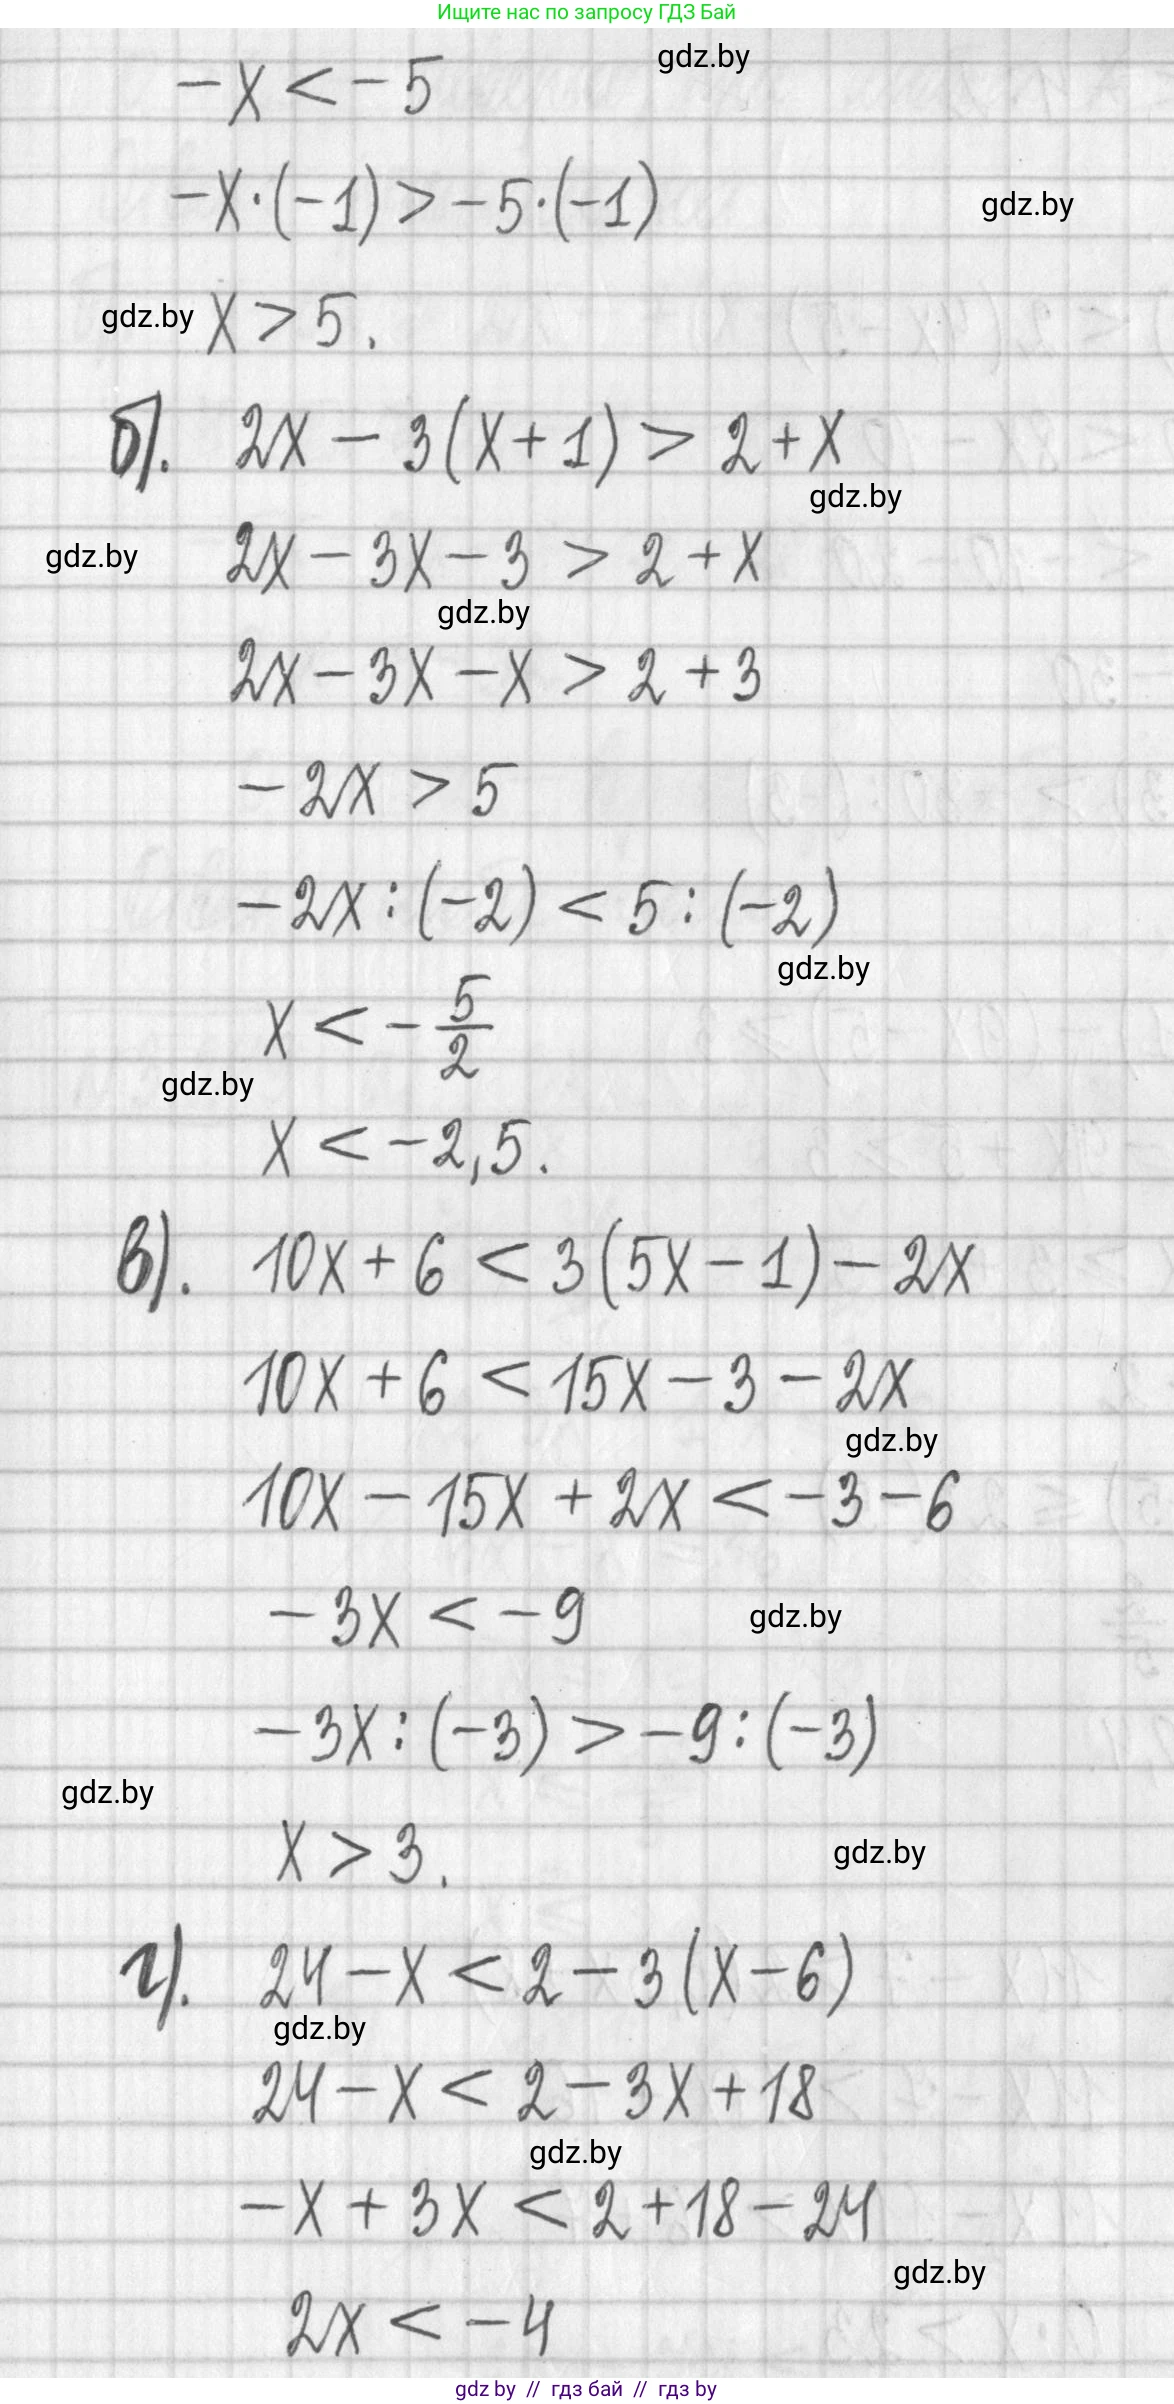 Ищите нас по запросу ГДЗ Бай
-x < -5
gdz.by
-x·(-1) > -5·(-1)
gdz.by
gdz.by
x > 5.
б). 2x - 3(x+1) > 2+x
gdz.by
gdz.by
2x - 3x - 3 > 2 + x
gdz.by
2x - 3x - x > 2 + 3
-2x > 5
-2x : (-2) < 5 : (-2)
gdz.by
x < -5/2
gdz.by
x < -2,5.
в). 10x + 6 < 3(5x - 1) - 2x
10x + 6 < 15x - 3 - 2x
gdz.by
10x - 15x + 2x < -3 - 6
-3x < -9
gdz.by
-3x : (-3) > -9 : (-3)
gdz.by
x > 3.
gdz.by
г). 24 - x < 2 - 3(x - 6)
gdz.by
24 - x < 2 - 3x + 18
gdz.by
-x + 3x < 2 + 18 - 24
gdz.by
2x < -4
gdz by // гдз бай // гдз by